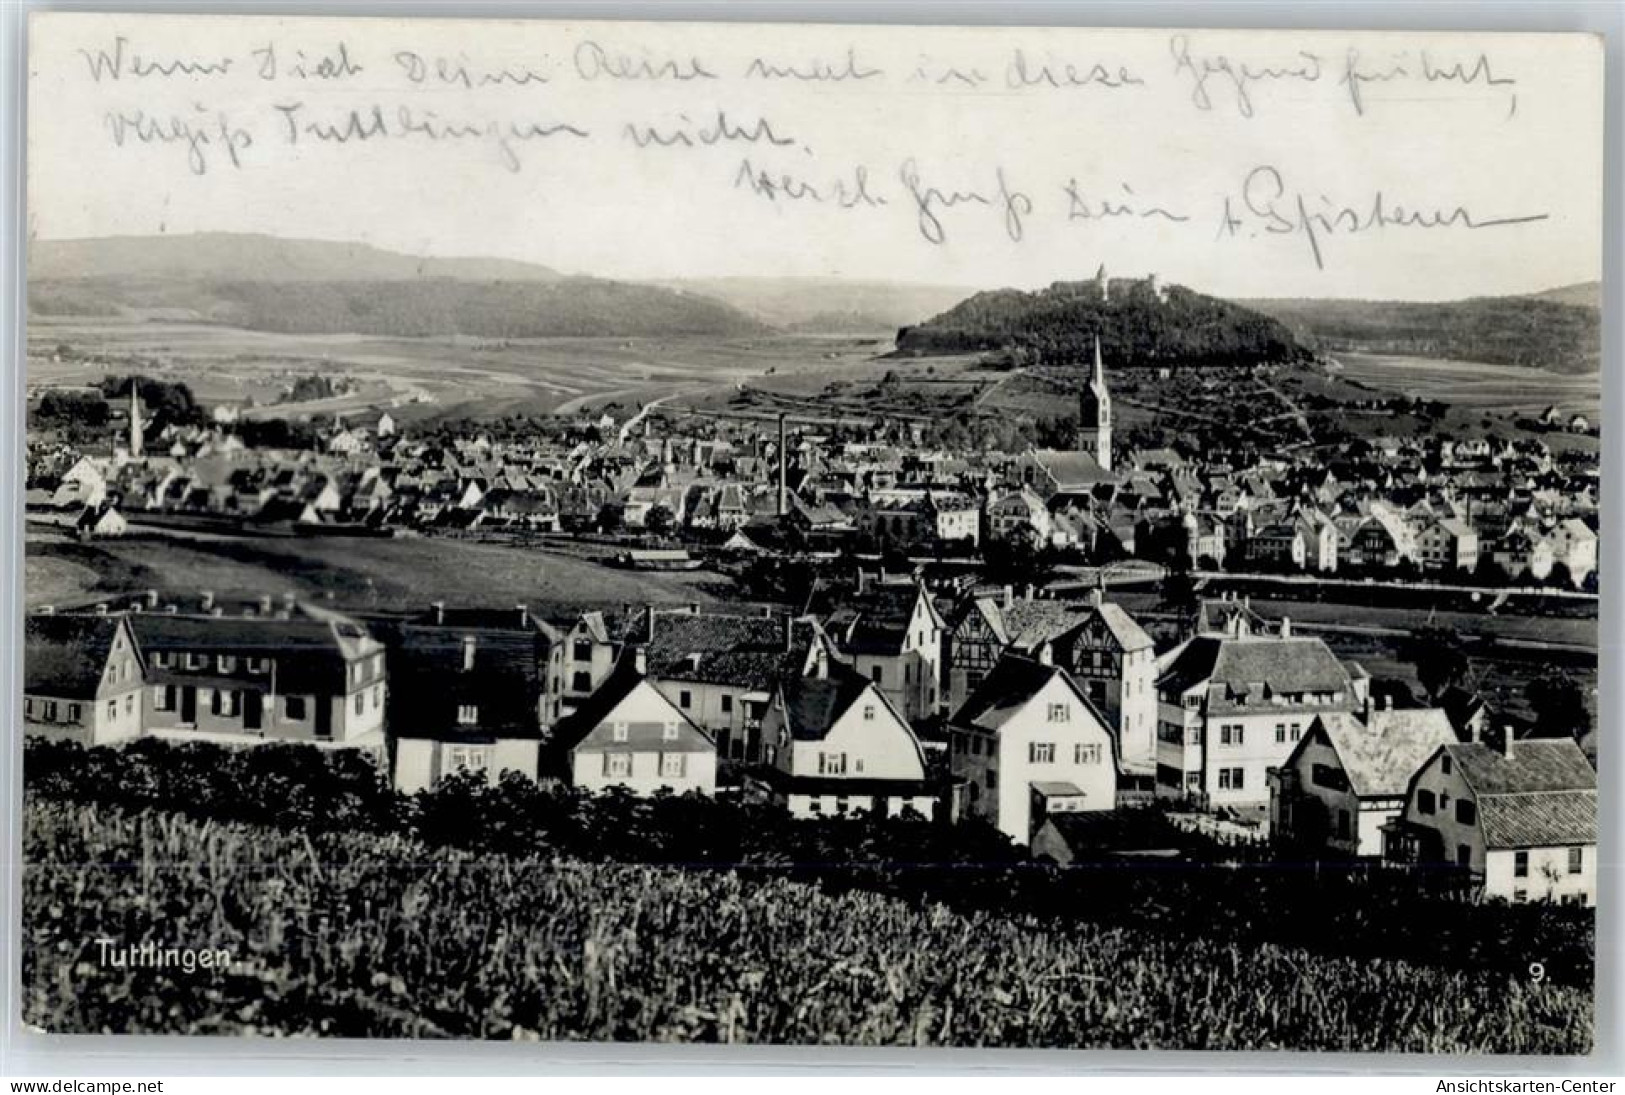 Wenn Dich Deine Reise mal in diese Gegend führt,
vergiß Tuttlingen nicht.
Herzl. Gruß Dein A. Pfisterer
Tuttlingen.
9.
www.delcampe.net
Ansichtskarten-Center